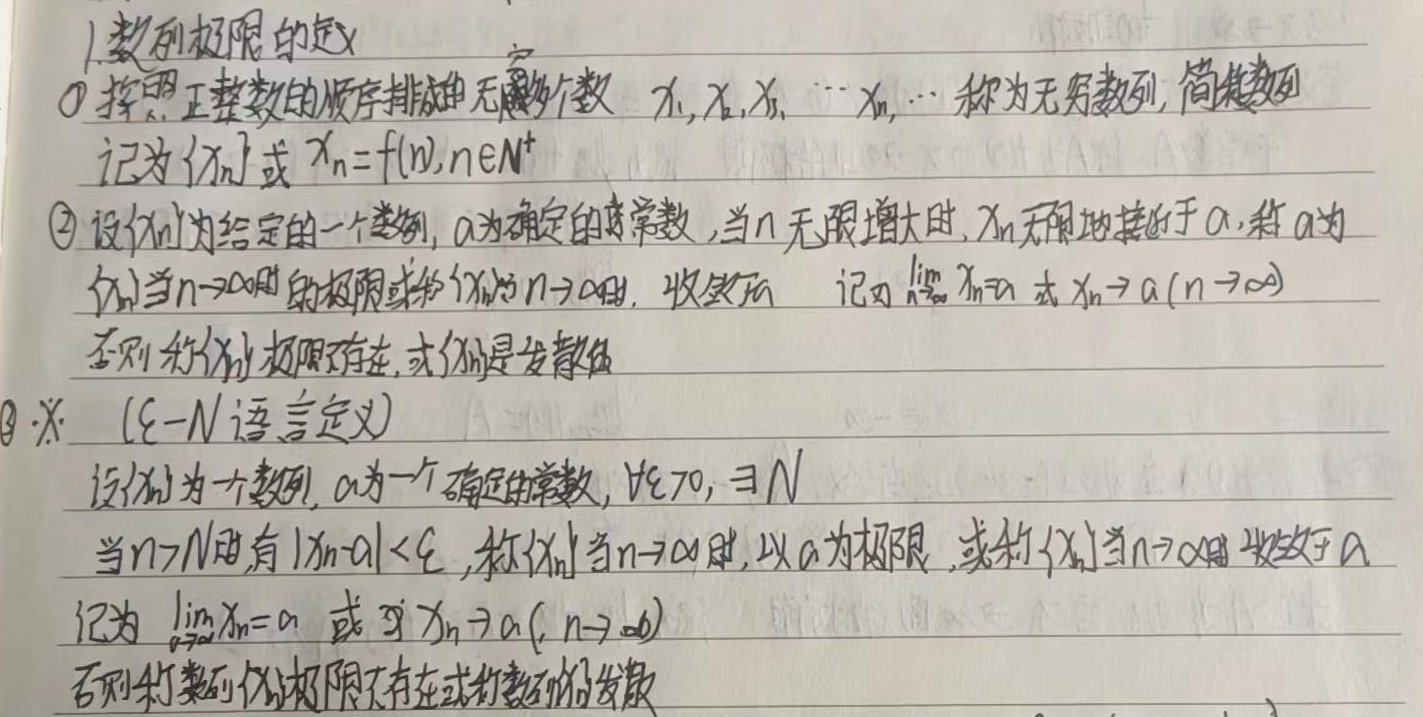 1.数列极限的定义
① 按照正整数的顺序排成的无穷多个数 x₁, x₂, x₃, … xₙ, … 称为无穷数列, 简称数列
记为{xₙ}或 xₙ=f(n), n∈N⁺
② 设{xₙ}为给定的一个数列, a为确定的常数, 当n无限增大时, xₙ无限地接近于a, 称a为
{xₙ}当n→∞时的极限或称{xₙ}当n→∞时, 收敛于a 记为 lim n→∞ xₙ=a 或 xₙ→a(n→∞)
否则称{xₙ}极限不存在, 或{xₙ}是发散的
③ ※ (ε-N语言定义)
设{xₙ}为一个数列, a为一个确定的常数, ∀ε>0, ∃N
当n>N时, 有|xₙ-a|<ε, 称{xₙ}当n→∞时, 以a为极限, 或称{xₙ}当n→∞时收敛于a
记为 lim n→∞ xₙ=a 或 xₙ→a(n→∞)
否则称数列{xₙ}极限不存在或称数列{xₙ}发散